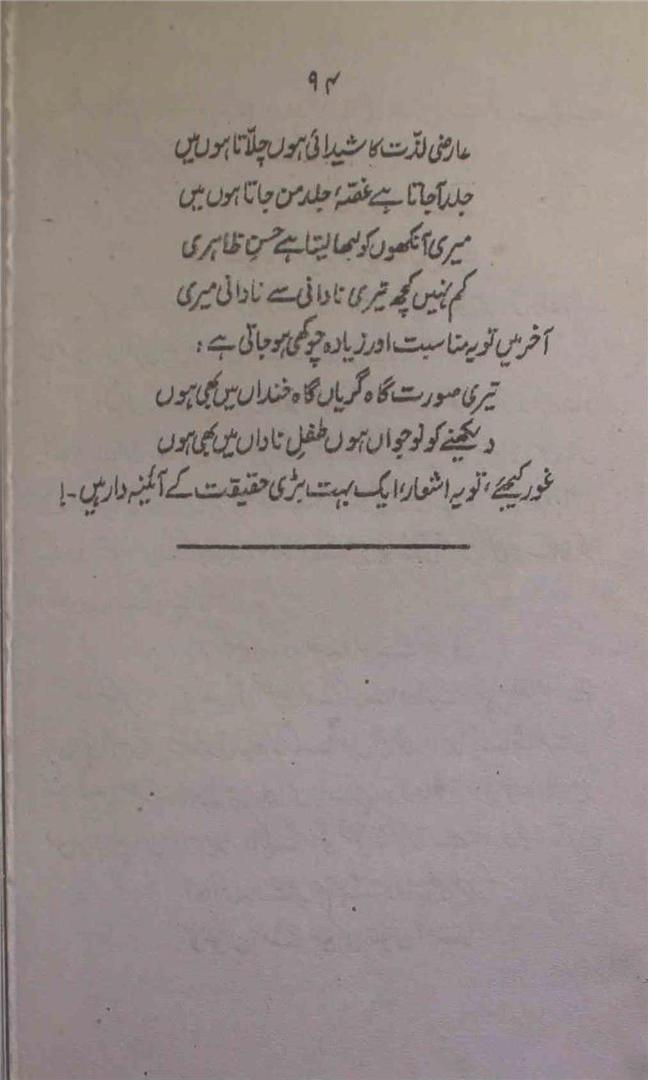 ۹۴
عارضی لذّت کا شیدائی ہوں چلّاتا ہوں میں
جلد آجاتا ہے غصّہ، جلد من جاتا ہوں میں
میری آنکھوں کو لبھا لیتا ہے حسنِ ظاہری
کم نہیں کچھ تیری نادانی سے نادانی میری
آخر میں تو یہ مناسبت اور زیادہ چوکھی ہو جاتی ہے :
تیری صورت گاہ گریاں گاہ خنداں میں بھی ہوں
دیکھنے کو نوجواں ہوں طفلِ ناداں میں بھی ہوں
غور کیجئے، تو یہ اشعار، ایک بہت بڑی حقیقت کے آئینہ دار ہیں۔!